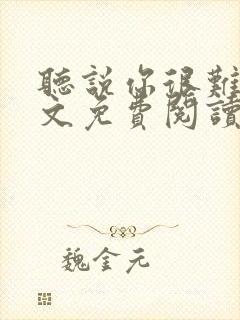 聽說你很難
文免費閱讀
魏金元